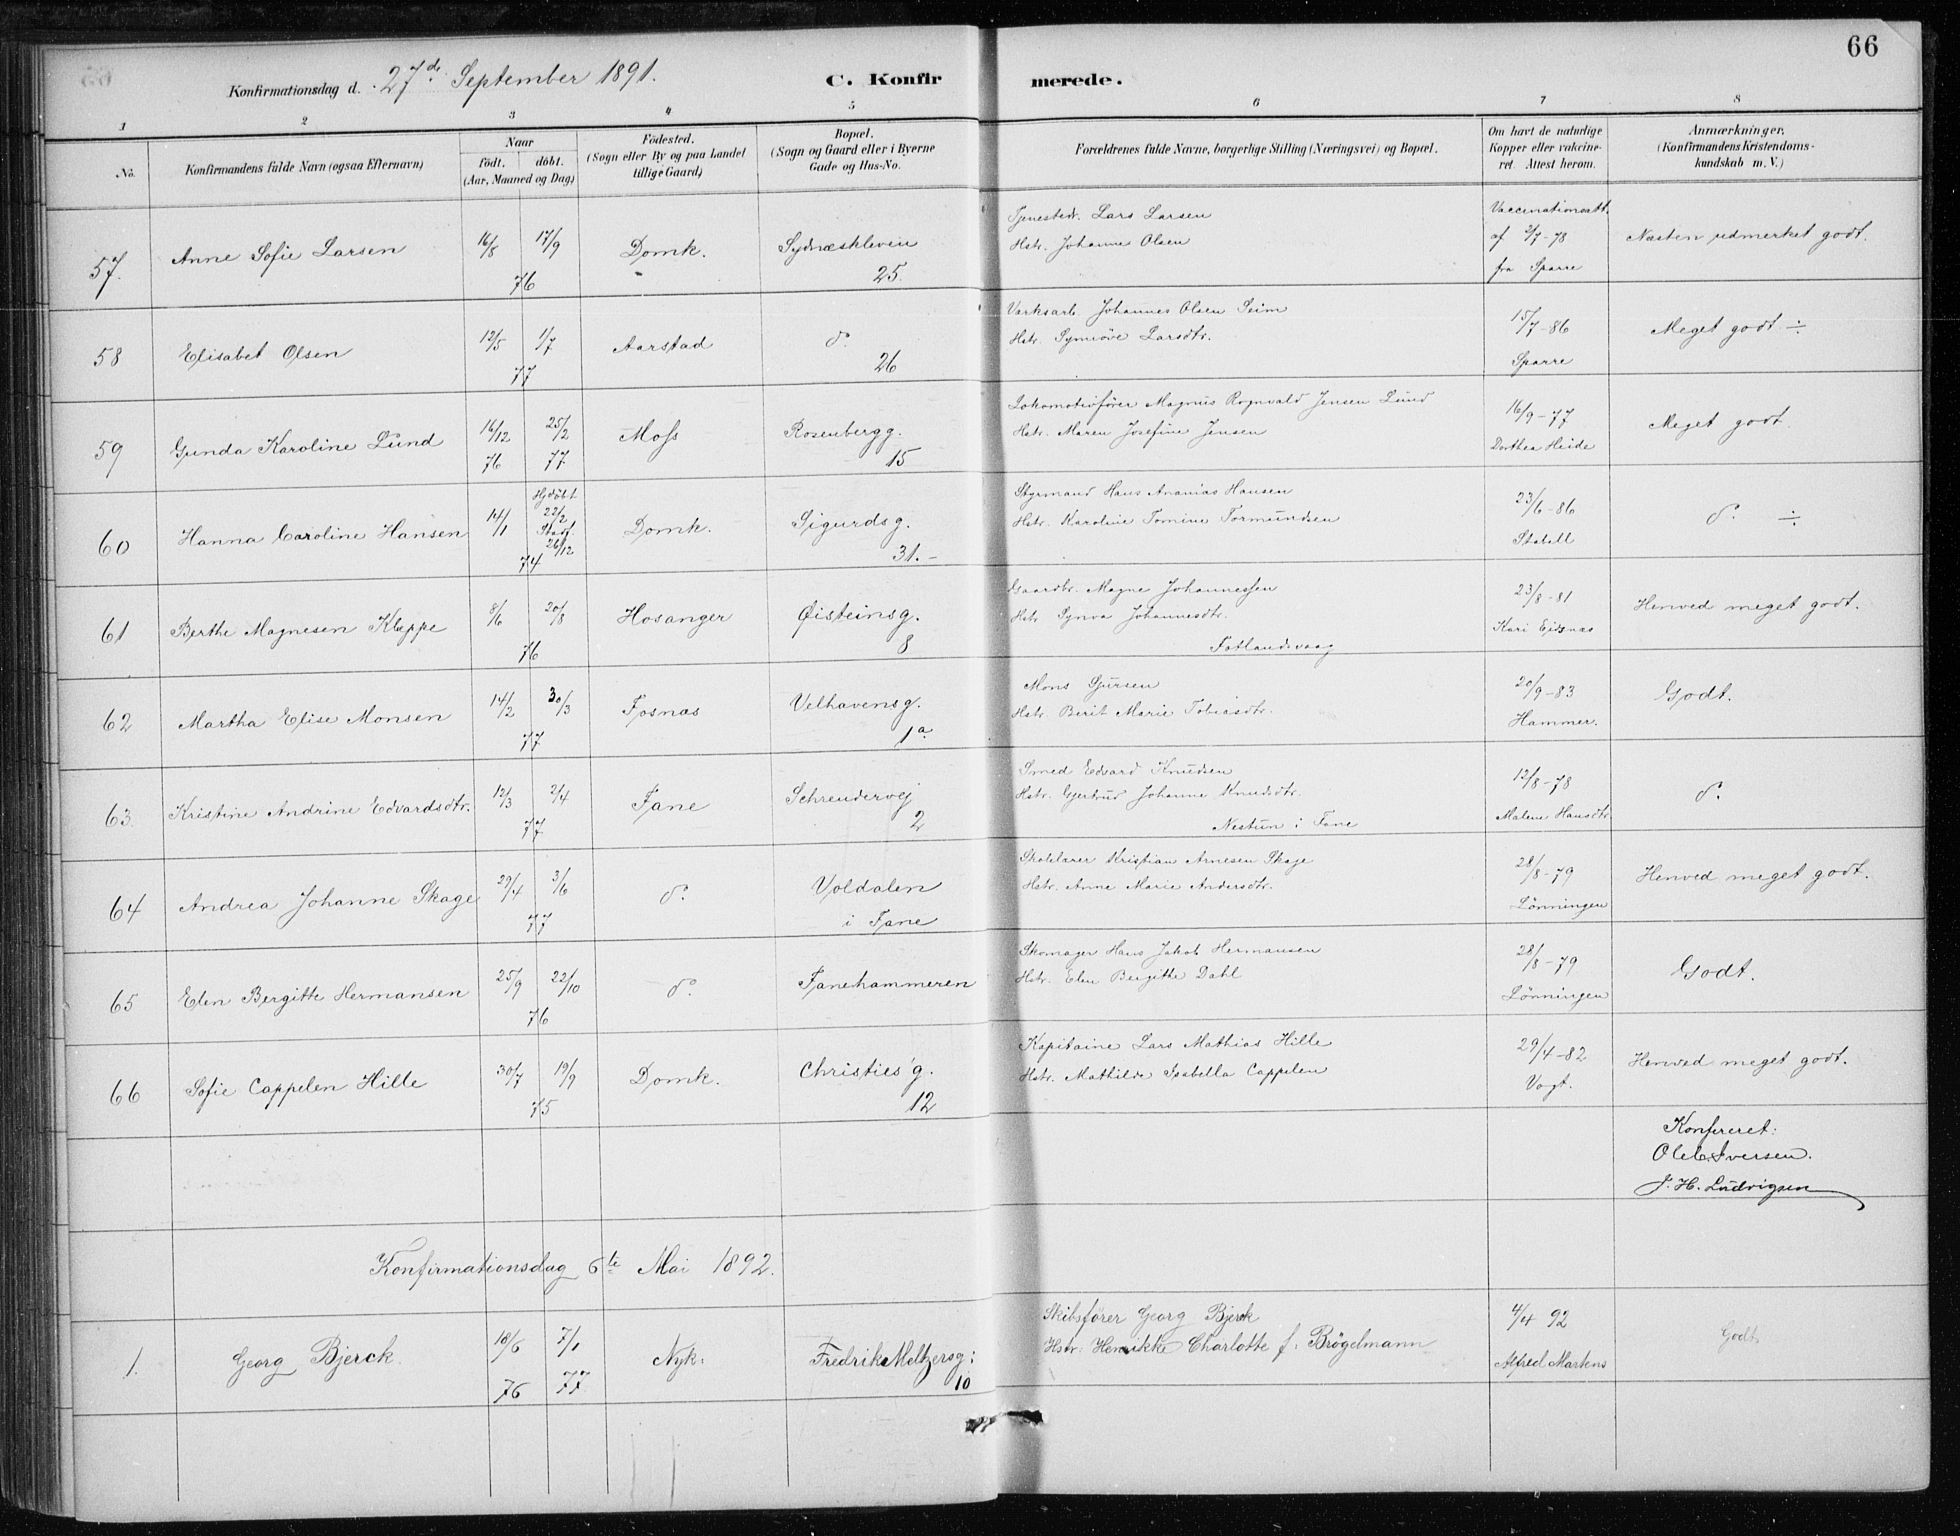 66
Konfirmationsdag d. 27de September 1891.
C. Konfirmerede.
1 2 3 4 5 6 7 8
No.
Konfirmandens fulde Navn (ogsaa Efternavn)
Naar
födt. döbt.
(Aar, Maaned og Dag)
Födested.
(Sogn eller By og paa Landet
tillige Gaard)
Bopæl.
(Sogn og Gaard eller i Byerne
Gade og Hus-No.
Forældrenes fulde Navne, borgerlige Stilling (Næringsvei) og Bopæl.
Om havt de naturlige
Kopper eller vakcine-
ret. Attest herom.
Anmærkninger.
(Konfirmandens Kristendoms-
kundskab m. V.)
57. Anne Sofie Larsen 16/8 17/9 76 Domk. Sydnæskleven 25.
Tjenestedr. Lars Larsen
Hstr. Johanne Olsen
Vaccinationsatt.
af 3/7-78
fra Sparre
Næsten udmerket godt.
58 Elisabet Olsen 12/5 1/7 77 Aarstad do. 26
Værksarb. Johannes Olsen Seim
Hstr. Synnöve Larsdtr.
15/7-86
Sparre
Meget godt ÷
59 Gunda Karoline Lund 16/12 76 25/2 77 Moss Rosenbergg. 15
Lokomotivförer Magnus Rognvald Jensen Lund
Hstr. Maren Josefine Jensen
16/9-77
Dorthea Heide
Meget godt.
60 Hanna Caroline Hansen 14/1 Hjdöbt 22/2 Stadf. 26/12 74 Domk. Sigurdsg. 31.-
Styrmand Hans Ananias Hansen
Hstr. Karoline Tomine Tormundsen
23/6-86
Stabell
do. ÷
61 Berthe Magnesen Kleppe 8/6 20/8 76 Hosanger Øisteinsg. 8
Gaardbr. Magne Johannessen
Hstr. Synva Johannesdtr.
Fotlandsvaag
23/8-81
Kari Eidsnæs
Henved meget godt.
62 Martha Elise Monsen 14/2 30/3 77 Fosnæs Velhavensg. 1a
Mons Sjursen
Hstr. Berit Marie Tobiasdtr.
20/9-83
Hammer.
Godt.
63. Kristine Andrine Edvardsdtr. 12/3 2/4 77. Fane Schreudervej 2
Smed Edvard Knudsen
Hstr. Gjertrud Johanne Knudsdtr.
Nestun i Fane
12/8-78
Malene Hansdtr.
do.
64 Andrea Johanne Skage 29/4 3/6 77 do. Voldalen
i Fane
Skolelærer Kristian Arnesen Skage
Hstr. Anne Marie Andersdtr.
28/8-79
Lönningen
Henved meget godt.
65 Elen Bergitte Hermansen 25/9 22/10 76 do. Fanehammeren
Skomager Hans Jakob Hermansen
Hstr. Elen Bergitte Dahl
28/8-79
Lönningen
Godt.
66 Sofie Cappelen Hille 30/7 19/9 75 Domk. Christies'g. 12
Kapitaine Lars Mathias Hille
Hstr. Mathilde Isabella Cappelen
29/4-82
Vogt.
Henved meget godt.
Konfereret:
Ole Iversen.
J. H. Ludvigsen
Konfirmationsdag 6te Mai 1892.
1. Georg Bjerck. 18/6 76 7/1 77 Nyk: Fredrik Meltzersg: 10
Skibsförer Georg Bjerck
Hstr: Henrikke Charlotte f: Brögelmann
4/4 92
Alfred Martens
Godt